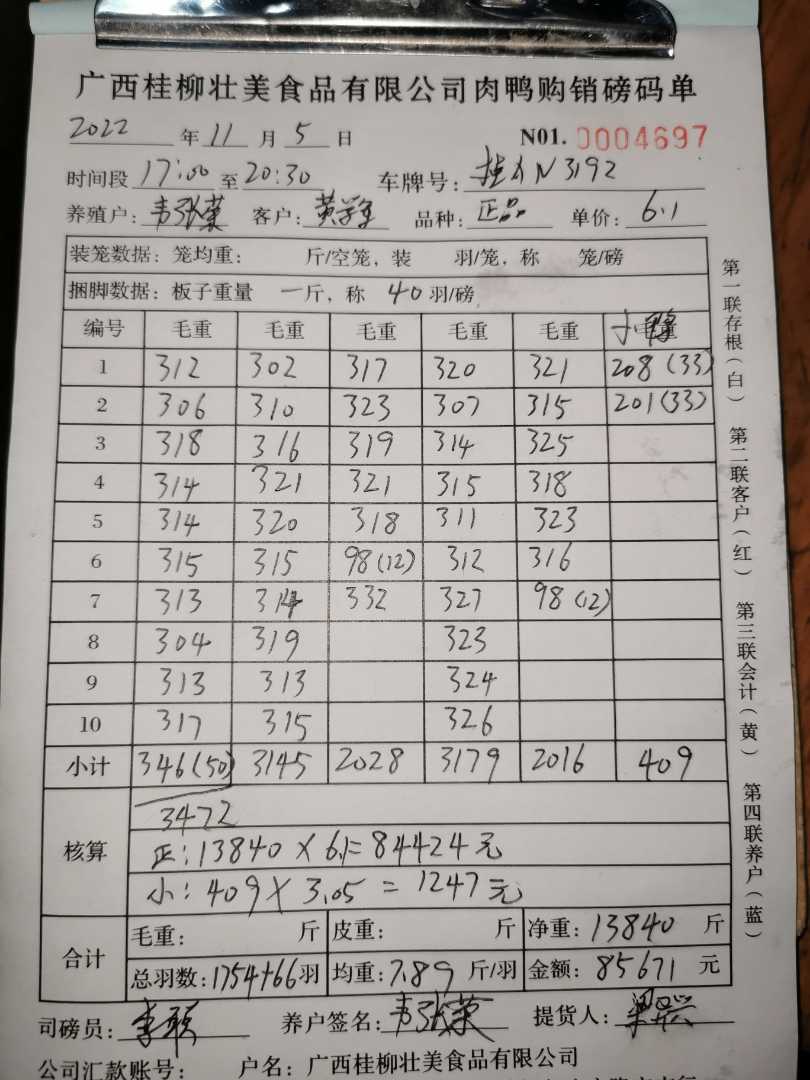 广西桂柳壮美食品有限公司肉鸭购销磅码单
2022 年 11 月 5 日 N01. 0004697
时间段 17:00 至 20:30 车牌号: 桂AN3192
养殖户: 韦张荣 客户: 黄 品种: 正品 单价: 6.1
装笼数据: 笼均重: 斤/空笼, 装 羽/笼, 称 笼/磅
捆脚数据: 板子重量 一斤, 称 40 羽/磅
编号 毛重 毛重 毛重 毛重 毛重 小鸭
1 312 302 317 320 321 208 (33)
2 306 310 323 307 315 201 (33)
3 318 316 319 314 325
4 314 321 321 315 318
5 314 320 318 311 323
6 315 315 98 (12) 312 316
7 313 314 332 327 98 (12)
8 304 319 323
9 313 313 324
10 317 315 326
小计 346 (50) 3145 2028 3179 2016 409
3472
核算 正: 13840 × 6.1 = 84424元
小: 409 × 3.05 = 1247元
合计 毛重: 斤 皮重: 斤 净重: 13840 斤
总羽数: 1754+66羽 均重: 7.89 斤/羽 金额: 85671 元
司磅员: 李 养户签名: 韦张荣 提货人: 梁
公司汇款账号: 户名: 广西桂柳壮美食品有限公司
第一联存根(白)
第二联客户(红)
第三联会计(黄)
第四联养户(蓝)